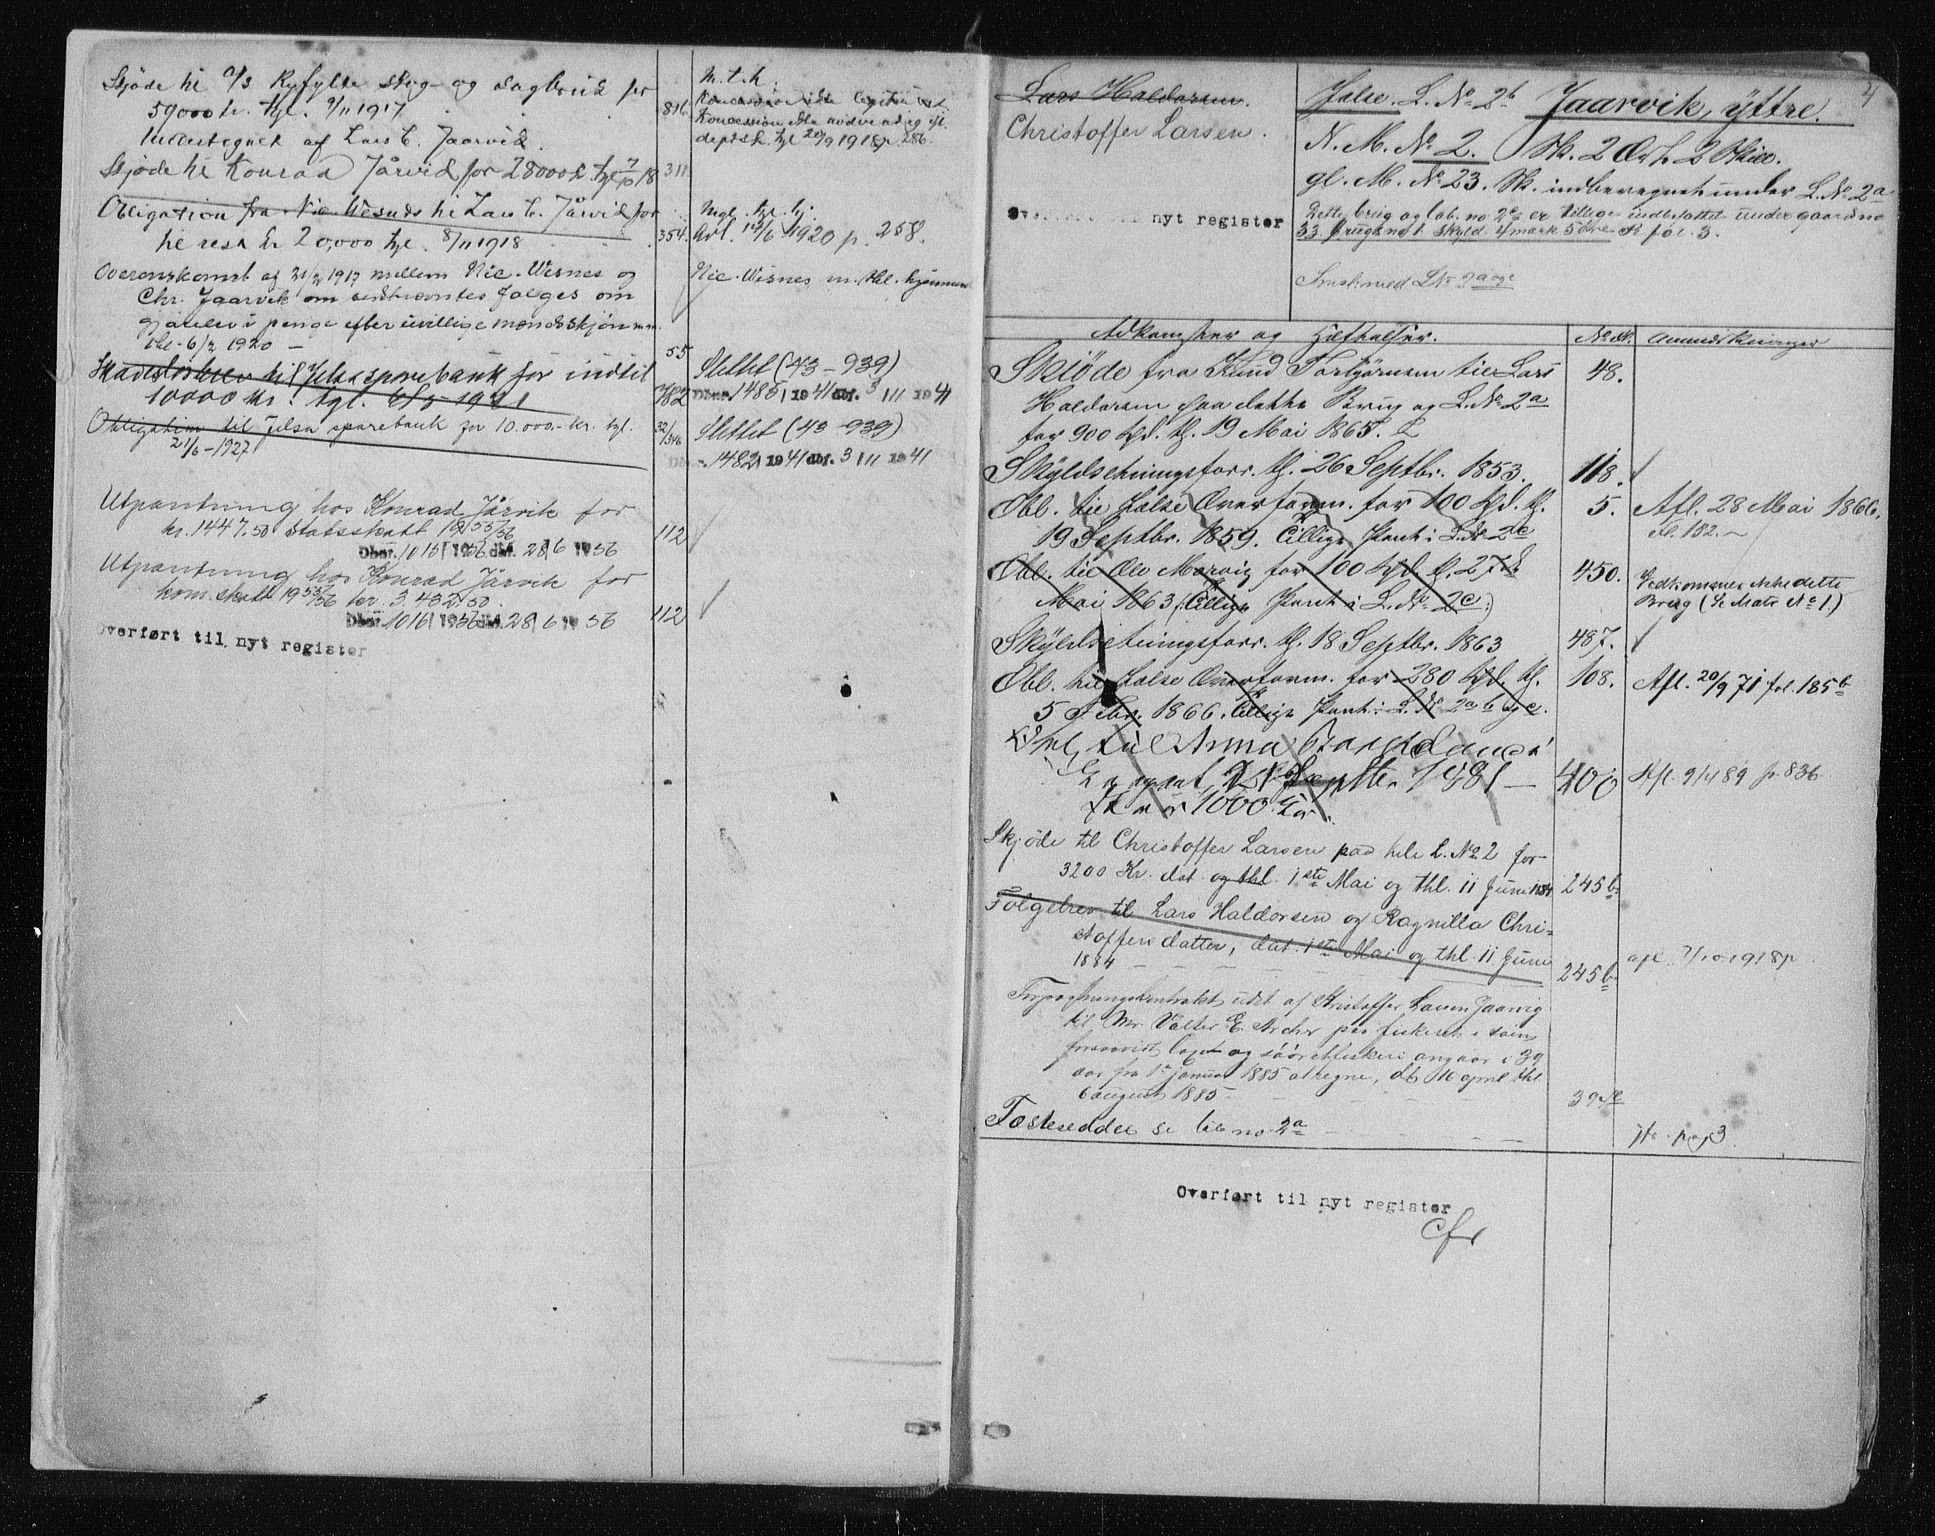 Skjöde til A/S Ryfylke skog- og sagbruk for
59000 kr. tgl. 9/11 1917.
816
M.t.h.
Koncession ikke
Koncession ikke nødvendig ifl.
deptsk. tgl. 20/9 1918 p. 286.
Undertegnet af Lars C. Jaarvik.
Skjöde til Konrad Jårvik for 28000 kr tgl 7/10 18
311
Obligation fra Nic Wesnes til Lars C. Jårvik for
til rest kr 20,000 tgl. 8/11 1918
354.
Mgl. tgl. hj.
Avl. 1920 p. 258.
Overenskomst af 31/12 1917 mellem Nic. Wisnes og
Chr. Jaarvik om folges om
gjörelse i penge efter uvillige mænds skjön m.m.
thl. 6/2 1920 —
55
Nic. Wisnes m. thl. hjemmel
Skadeslösbrev til Jelsa sparebank for indtil
10000 kr. tgl. 6/5 1921
782
Slettet (43 – 939)
Dbnr. 1485 1941 dbf. 3/11 1941
Obligation til Jelsa sparebank for 10.000.- kr. tgl.
21/6 – 1927
32/346
Slettet (43 – 939)
Dbnr. 1482 1941 dbf. 3/11 1941
Utpantning hos Konrad Jårvik for
kr. 1447.50 Statsskatt 1955/56
Dbnr. 1015 1956 dbf. 28/6 1956
112
Utpantning hos Konrad Jårvik for
kom. skatt 1955/56 kr. 3.432.50.
Dbnr. 1016 1956 dbf. 28/6 1956
112
Overført til nyt register
4
Lars Haldorsen.
Christoffer Larsen.
Overført til nyt register
Jelse. L. No 2b Jaarvik, yttre.
N. M. No 2. Sk. 2 Ort. 2 Skill.
gl. M. No 23. Sk. indberegnet under L. No 2a
Dette brug og löb. no 2c er tillige indbefattet under gaardsno
33 brugsno 1. skyld 4 mark 5 Öre & fol. 3.
Smst. med L No 2a og c
Adkomster og Hæftelser.
No.
Anmærkninger
Skjöde fra Knud Torbjörnsen til Lars
Haldorsen paa dette Brug og L. No 2a
for 900 Spd. th. 19 Mai 1865.
48.
Skyldsetningsforr. th. 26 Septbr. 1853.
118.
Obl. til Jelse Overform. for 100 Spd. th.
19 Septbr. 1859. Tillige Pant i L. No 2c
5.
Afl. 28 Mai 1866,
fol. 152.
Obl. til Ole Marvig for 100 Spd. th. 27de
Mai 1863 (Tillige Pant i L. No 2c.)
450.
Vedkommer ikke dette
Brug (Se Matr No 1)
Skyldsetningsforr. th. 18 Septbr. 1863
487.
Obl. til Jelse Overform. for 280 Spd. th.
5 Febr. 1866. Tillige Pant i L. No 2a b og c.
108.
Afl. 20/9 71 fol. 185b
Obl. til Anna
21 Septbr 1881 —
for 1000 Kr.
400
Afl. 9/4 89 p. 836
Skjöde til Christoffer Larsen paa hele L. No 2 for
3200 Kr. dat. og thl. 1ste Mai og thl. 11 Juni 1884
245b
Folgebrev til Lars Haldorsen og Ragnilla Chri-
stoffersdatter, dat. 1ste Mai og thl. 11 Juni
1884
245b
apl. 7/10 1918 p.
Forpagtningskontrakt udst af Kristoffer Larsen Jaarvig
til Mr Valter E. Archer paa fiskeret i
forsaavidt laxe og sööretfiskeri angaar i 39
aar fra 1ste januar 1885 at regne, dt 16 april thl
6 august 1885
39
Fæsteseddel se lib no 2a
pag 3.
Overført til nyt register